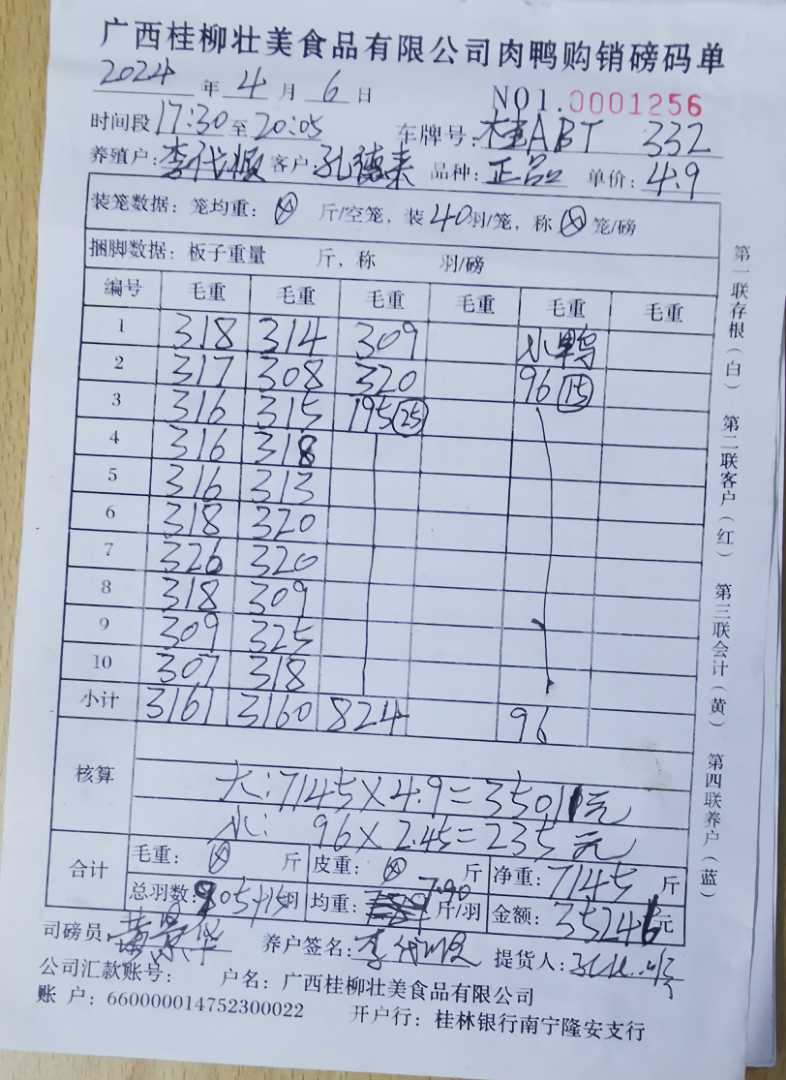 广西桂柳壮美食品有限公司肉鸭购销磅码单
2024 年 4 月 6 日 NO1.0001256
时间段 17:30 至 20:05 车牌号: 桂ABT 332
养殖户: 李代 客户: 孔德 品种: 正品 单价: 4.9
装笼数据: 笼均重: 斤/空笼, 装 40 羽/笼, 称 笼/磅
捆脚数据: 板子重量 斤, 称 羽/磅
编号 毛重 毛重 毛重 毛重 毛重 毛重
1 318 314 309 小鸭
2 317 308 320 96 15
3 316 315 195 25
4 316 318
5 316 313
6 318 320
7 326 320
8 318 309
9 309 325
10 307 318
小计 3161 3160 824 96
核算
大: 7145×4.9=35011元
小: 96×2.45=235元
合计 毛重: 斤 皮重: 斤 净重: 7145 斤
总羽数: 905+15羽 均重: 7.90 斤/羽 金额: 35246元
司磅员: 黄景华 养户签名: 李代 提货人:
公司汇款账号: 户名: 广西桂柳壮美食品有限公司
账 户: 660000014752300022 开户行: 桂林银行南宁隆安支行
第一联存根(白) 第二联客户(红) 第三联会计(黄) 第四联养户(蓝)